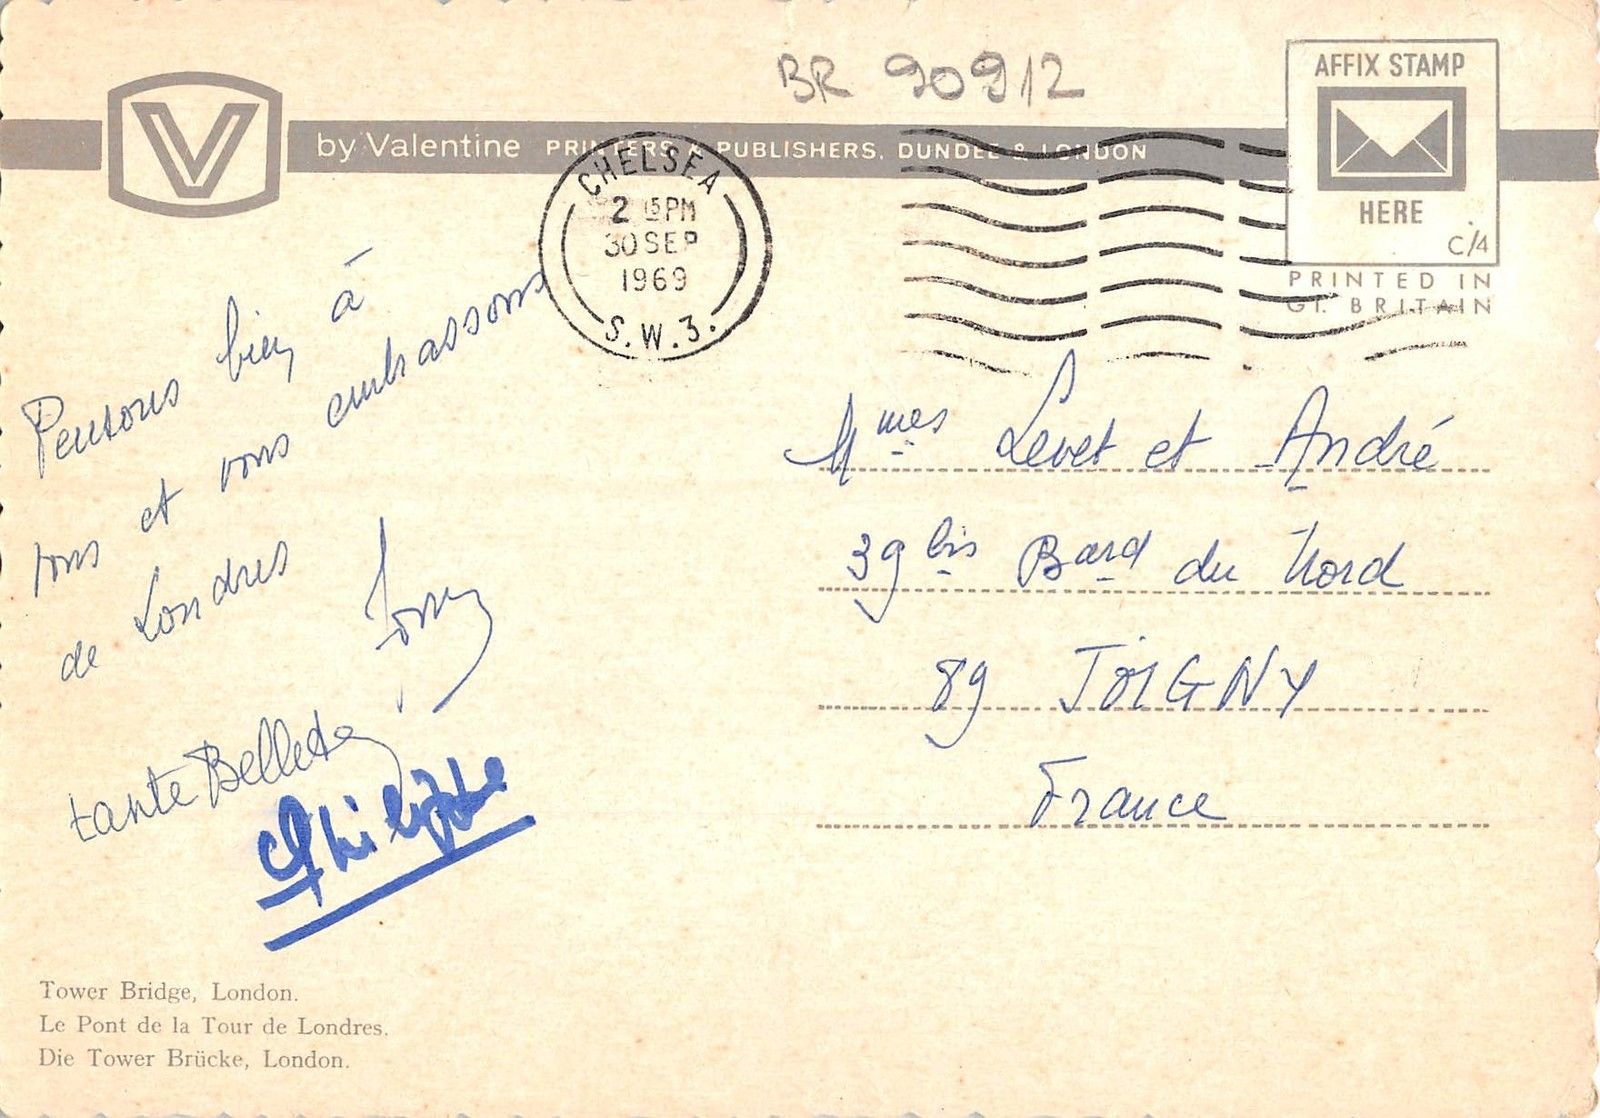 BR 90912
V
by Valentine PRINTERS & PUBLISHERS, DUNDEE & LONDON
AFFIX STAMP
HERE
C/4
PRINTED IN
GT. BRITAIN
CHELSEA
2 15 PM
30 SEP
1969
S.W.3.
Pensons bien à
tous et vous embrassons
de Londres
tante
Philippe
Mmes Levet et André
39 bis Bard du Nord
89 JOIGNY
France
Tower Bridge, London.
Le Pont de la Tour de Londres.
Die Tower Brücke, London.